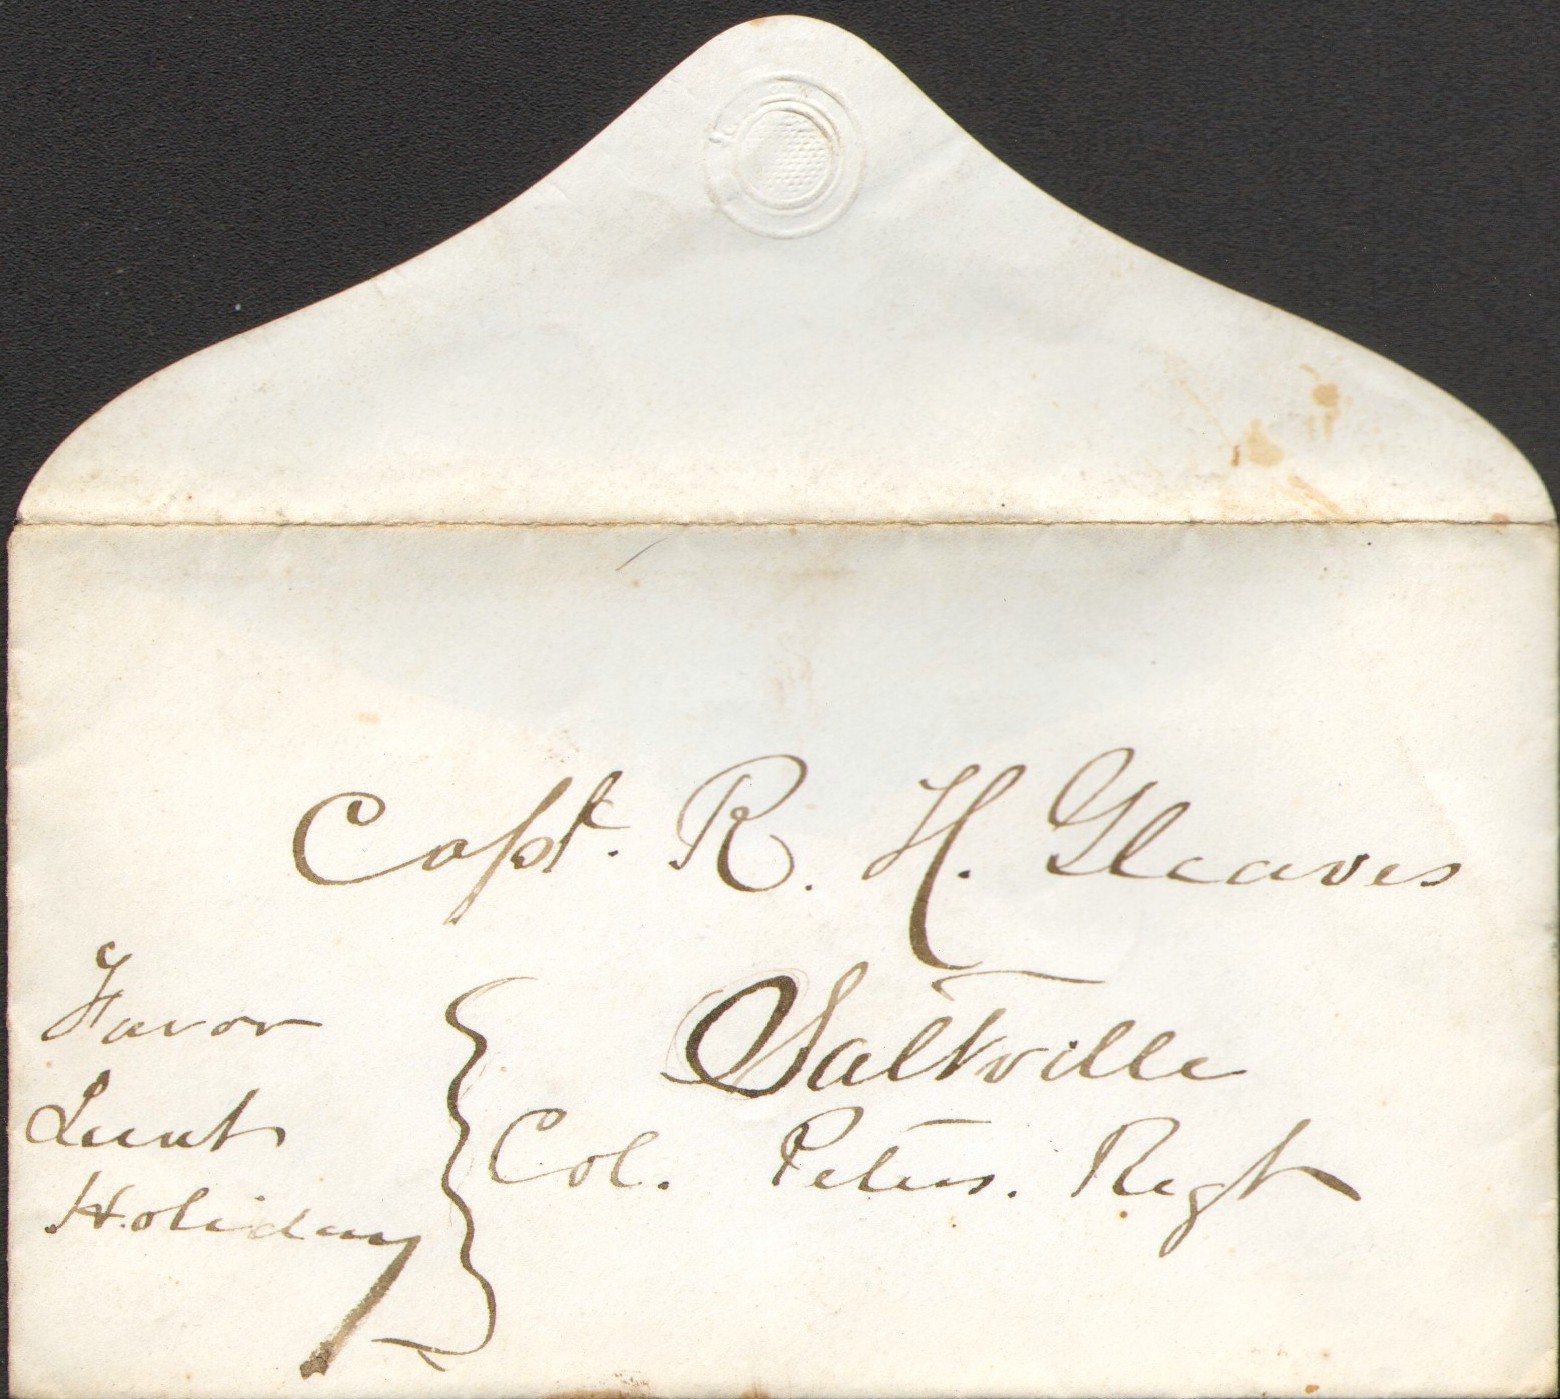 Capt. R. H. Gleaves
Saltville
Col. Peters. Regt
Favor
Lieut
Holiday